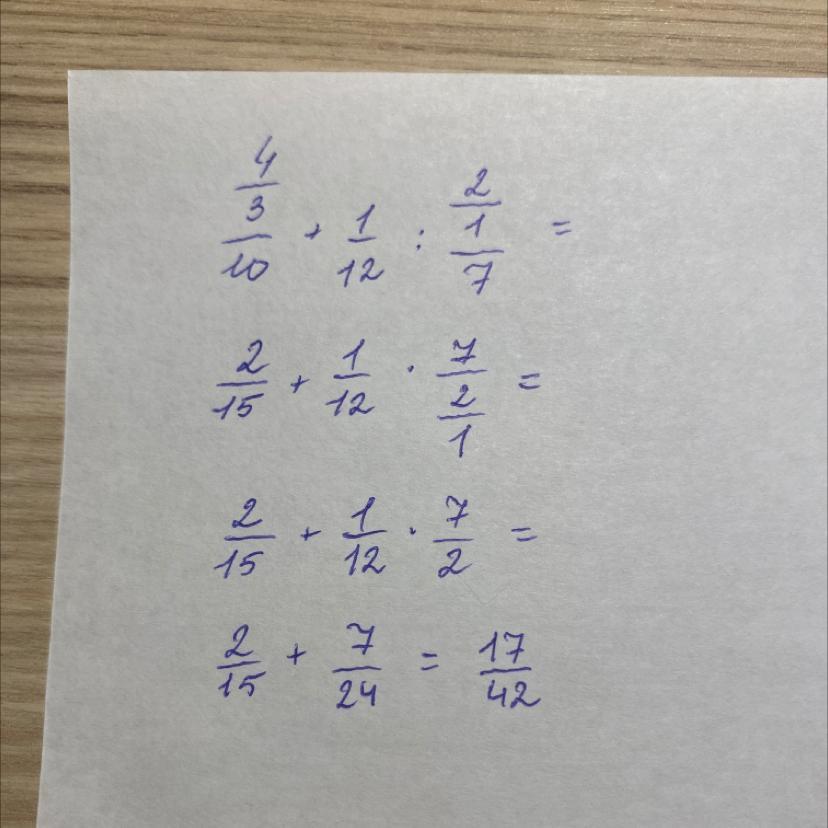 4/3/10 + 1/12 : 2/1/7 =
2/15 + 1/12 · 7/2/1 =
2/15 + 1/12 · 7/2 =
2/15 + 7/24 = 17/42